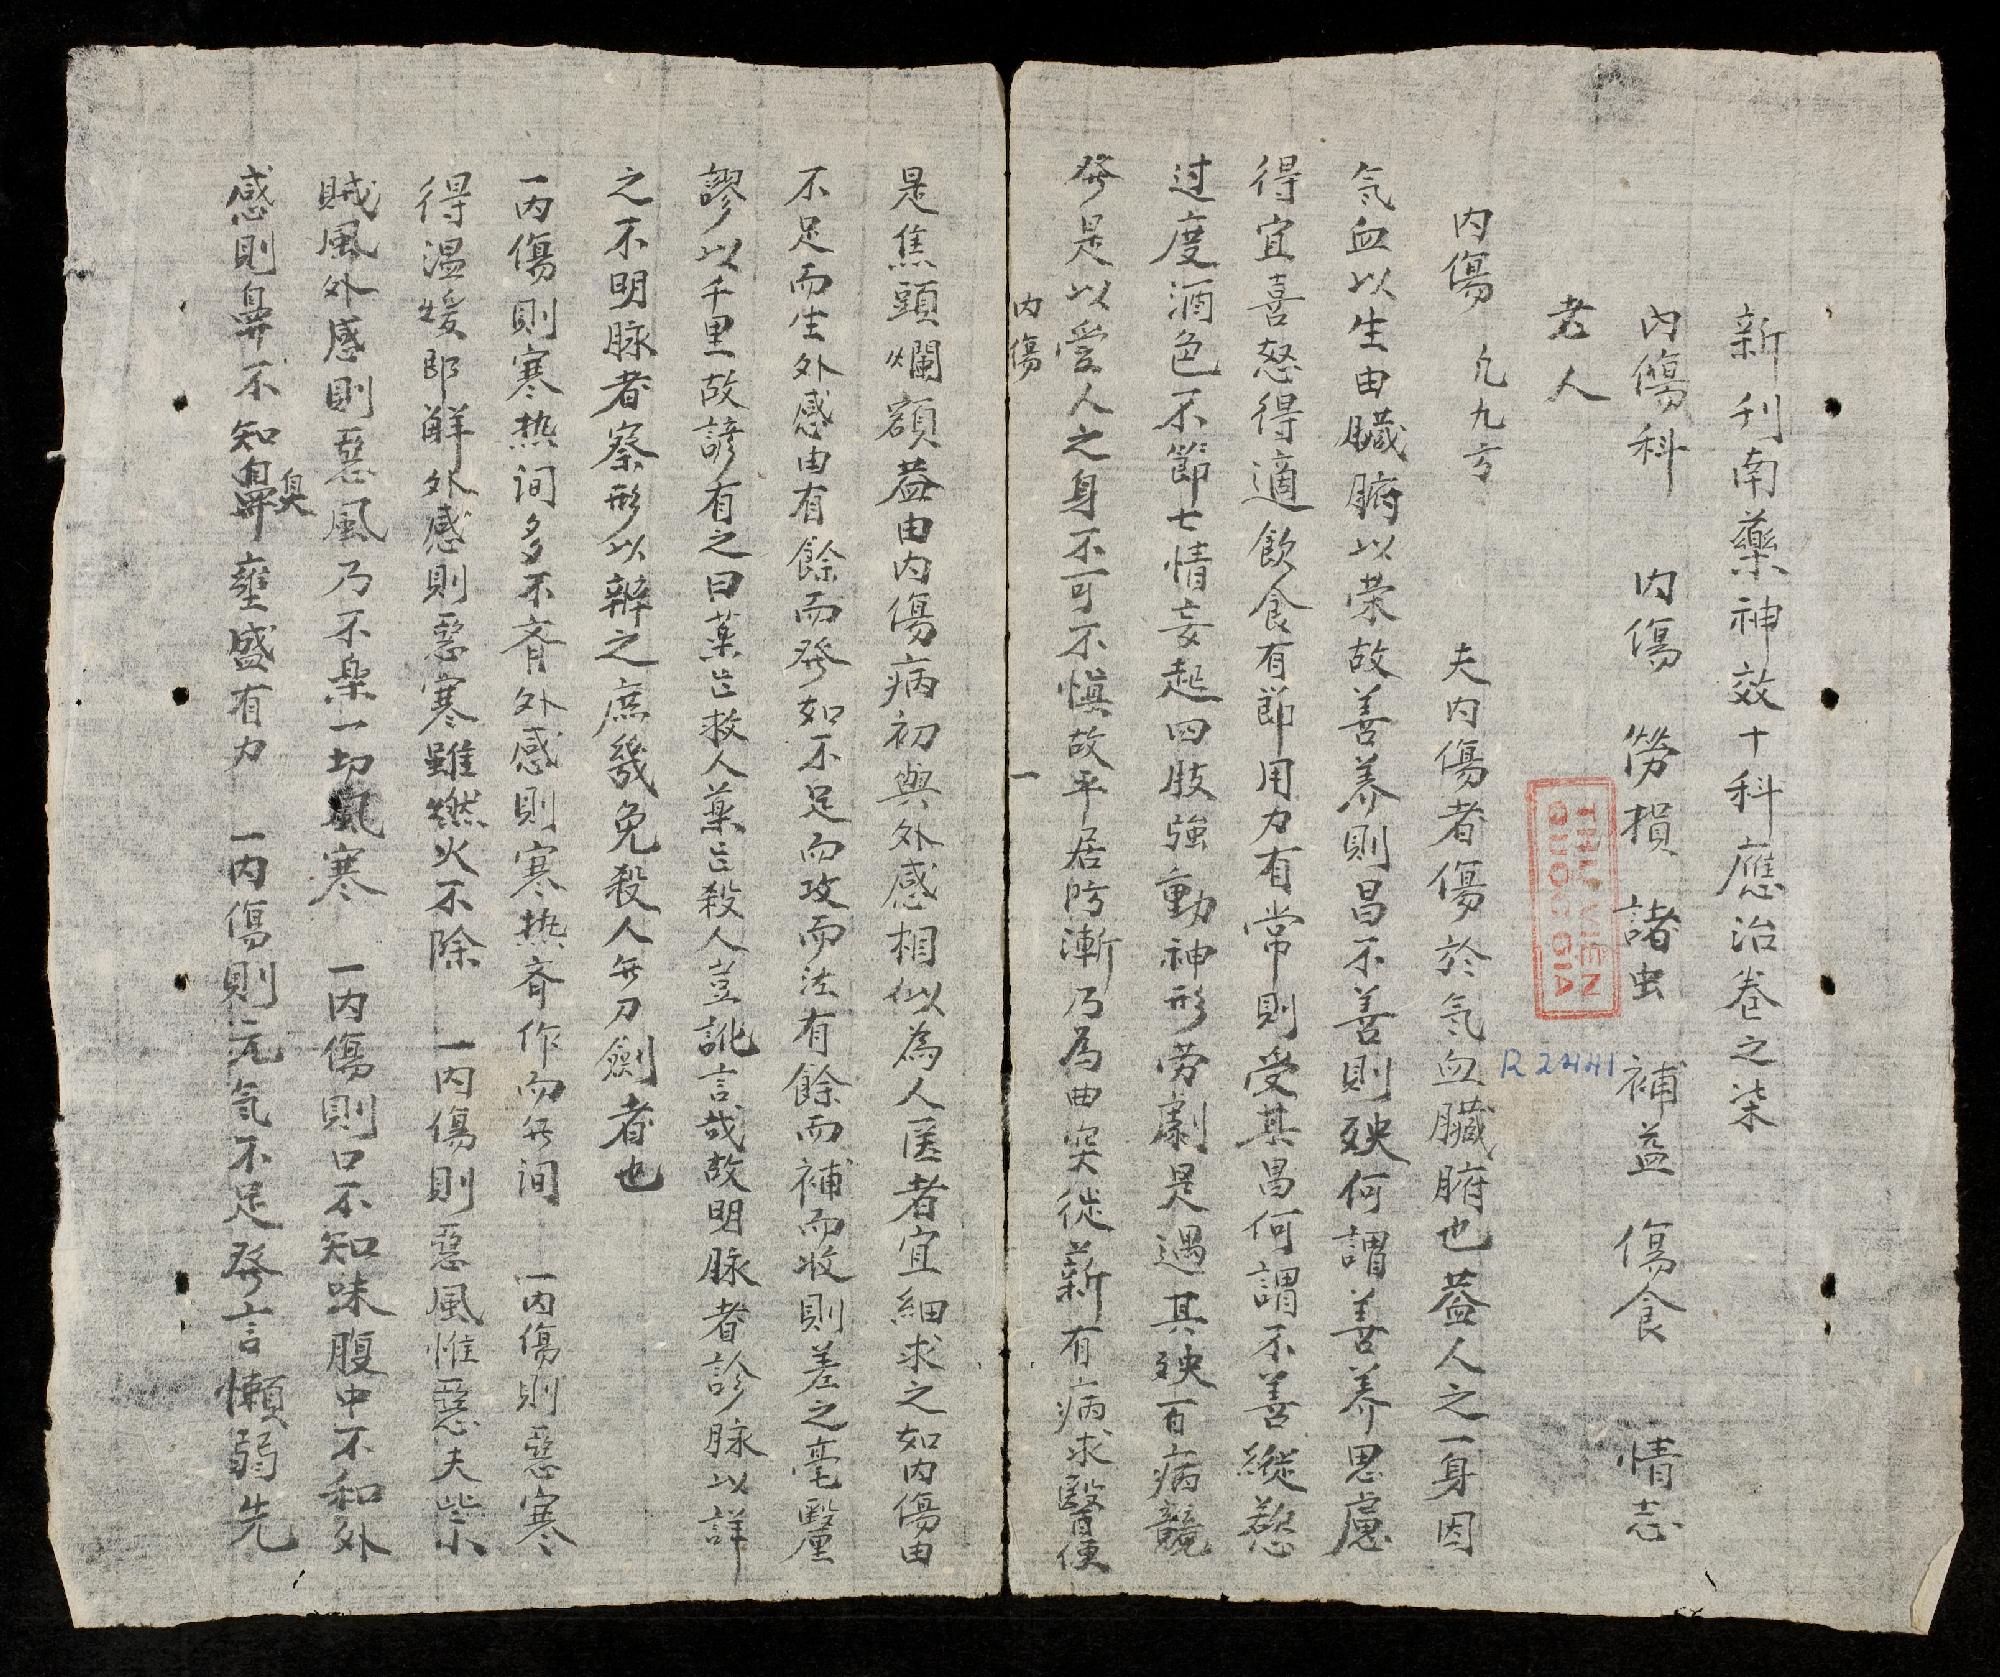 新刊南藥神效十科應治卷之柒
內傷科　內傷　勞損　諸虫　補益　傷食　情志
老人
THƯ VIỆN
QUỐC GIA
R 2441
內傷　凢九方　夫內傷者傷於氣血臟腑也葢人之一身因
氣血以生由臟腑以荣故善养則昌不善則殃何謂善养思慮
得宜喜怒得適飲食有節用力有常則受其昌何謂不善縱慾
过度酒色不節七情妄起四肢強動神形劳劇是遇其殃百病競
發是以愛人之身不可不慎故平居防漸乃為曲突徙薪有病求醫便
內傷
一
是焦頭爛額葢由內傷病初與外感相似為人医者宜細求之如內傷由
不足而生外感由有餘而發如不足而攻而法有餘而補而收則差之毫釐
謬以千里故諺有之曰藥亡救人藥亡殺人豈訛言哉故明脉者診脉以詳
之不明脉者察形以辨之庶幾免殺人無刀劍者也
一內傷則寒热间多不齐外感則寒热齐作而無间　一內傷則惡寒
得温煖即解外感則惡寒雖燃火不除　一內傷則惡風惟惡夫些小
賊風外感則惡風乃不𣓪一切風寒　一內傷則口不知味腹中不和外
感則鼻不知臭鼻壅盛有力　一內傷則元氣不足發言懶弱先